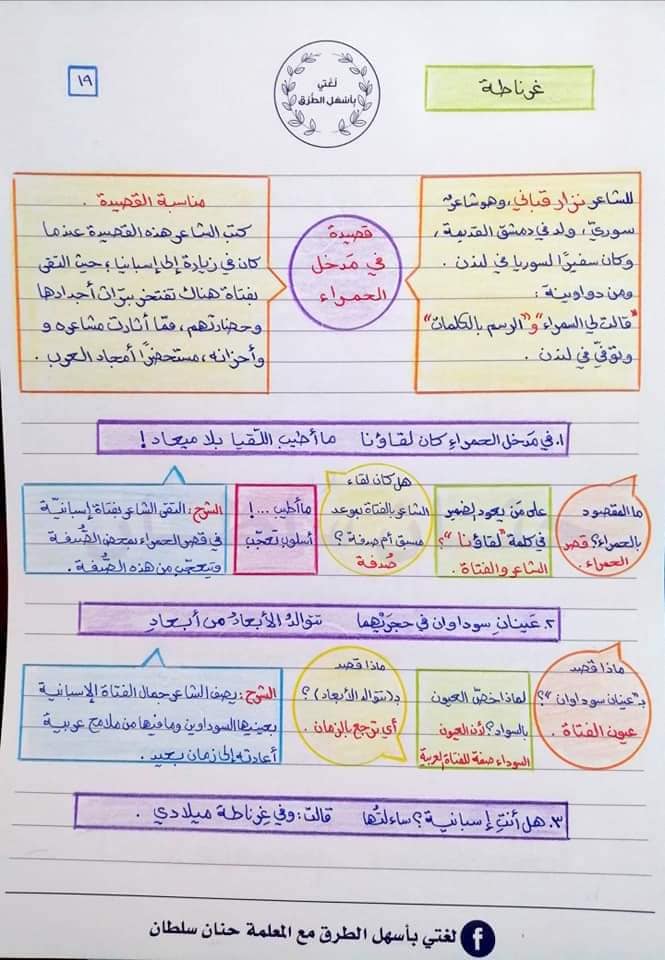 غرناطة
لغتي
بأسهل الطرق
١٩
للشاعر نزار قباني، وهو شاعر
سوريّ، ولد في دمشق القديمة،
وكان سفيرًا لسوريا في لندن.
ومن دواوينه:
"قالت لي السمراء" و"الرسم بالكلمات"
وتوفّي في لندن.
قصيدة
في مَدخل
الحمراء
مناسبة القصيدة.
كتب الشاعر هذه القصيدة عندما
كان في زيارة إلى إسبانيا؛ حيث التقى
بفتاة هناك تفتخر بتراث أجدادها
وحضارتهم، ممّا أثارت مشاعره و
وأحزانه، مستحضرًا أمجاد العرب.
١. في مَدخل الحمراءِ كان لقاؤنا ما أطيب اللّقيا بلا ميعاد!
ما المقصود
بالحمراء؟ قصر
الحمراء.
على مَن يعود الضمير
في كلمة "لقاؤنا"؟
الشاعر والفتاة.
هل كان لقاء
الشاعر بالفتاة بموعد
مسبق أم صدفة؟
صُدفة
ما أطيب ...!
أسلوب تعجّب
الشرح: التقى الشاعر بفتاة إسبانيّة
في قصر الحمراء بمحض الصُّدفة
وتعجّب من هذه الصُّدفة.
٢. عَينانِ سوداوان في حجرَيْهِما تتوالدُ الأبعادُ من أبعادِ
ماذا قصد
بـ"عينان سوداوان"؟
عيون الفتاة.
لماذا خصّ العيون
بالسواد؟ لأن العيون
السوداء صفة للفتاة العربية
ماذا قصد
بـ(تتوالد الأبعاد)؟
أي ترجع بالزمان.
الشرح: يصف الشاعر جمال الفتاة الإسبانية
بعينيها السوداوين وما فيها من ملامح عربية
أعادته إلى زمان بعيد.
٣. هل أنتِ إسبانية؟ ساءلتُها قالت: وفي غِرناطة ميلادي.
لغتي بأسهل الطرق مع المعلمة حنان سلطان